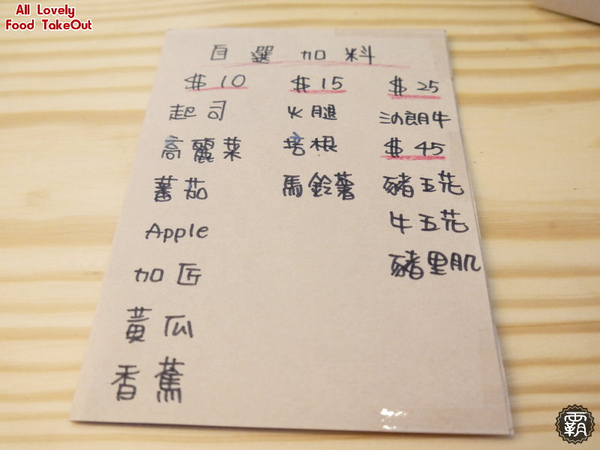 All Lovely
Food TakeOut
自選加料
$10
起司
高麗菜
蕃茄
Apple
加匠
黃瓜
香蕉
$15
火腿
培根
馬鈴薯
$25
沙朗牛
$45
豬五花
牛五花
豬里肌
霸